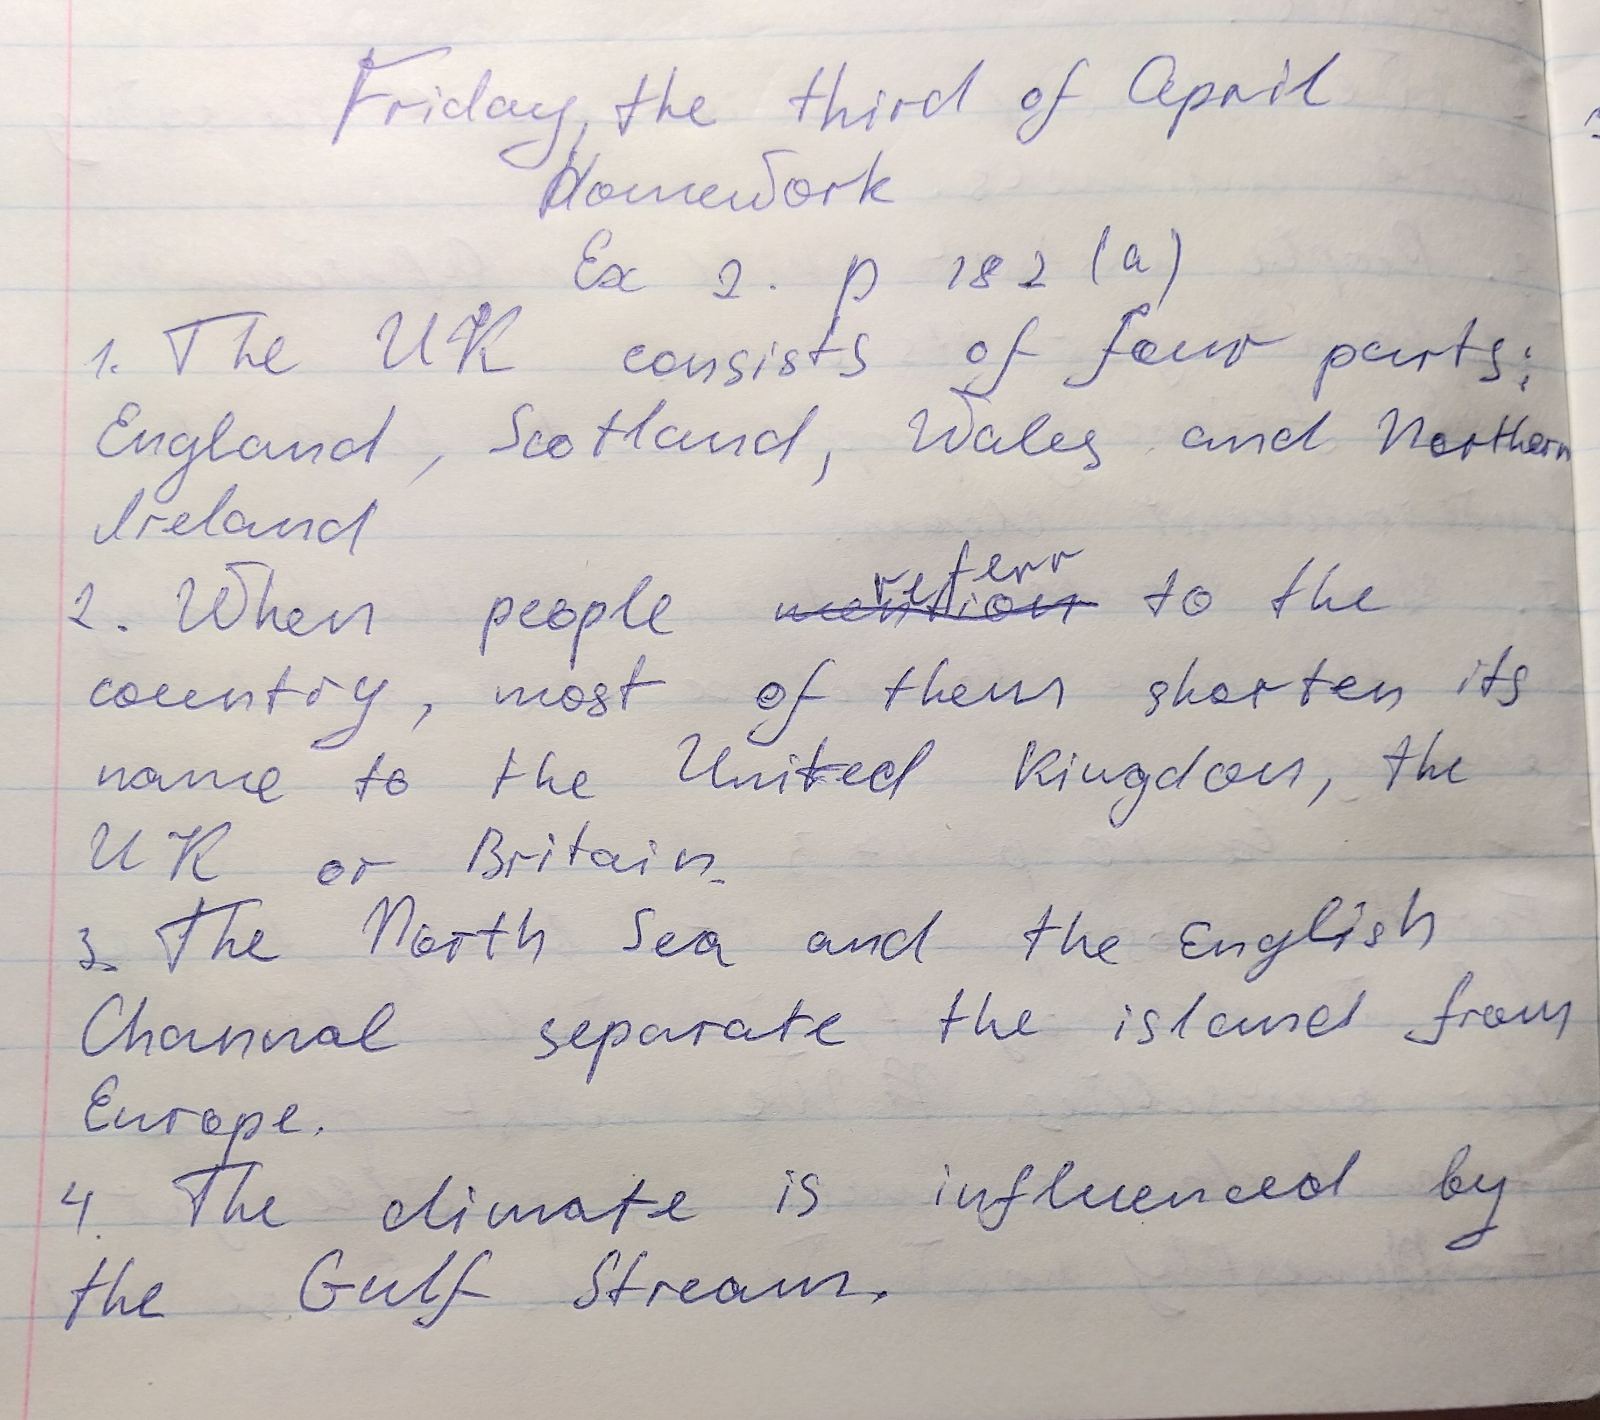 Friday, the third of April
Homework
Ex 2. p 182 (a)
1. The UK consists of four parts:
England, Scotland, Wales and Northern
Ireland
2. When people referr to the
country, most of them shorten its
name to the United Kingdom, the
UK or Britain.
3. The North Sea and the English
Channal separate the island from
Europe.
4. The climate is influenced by
the Gulf Stream.